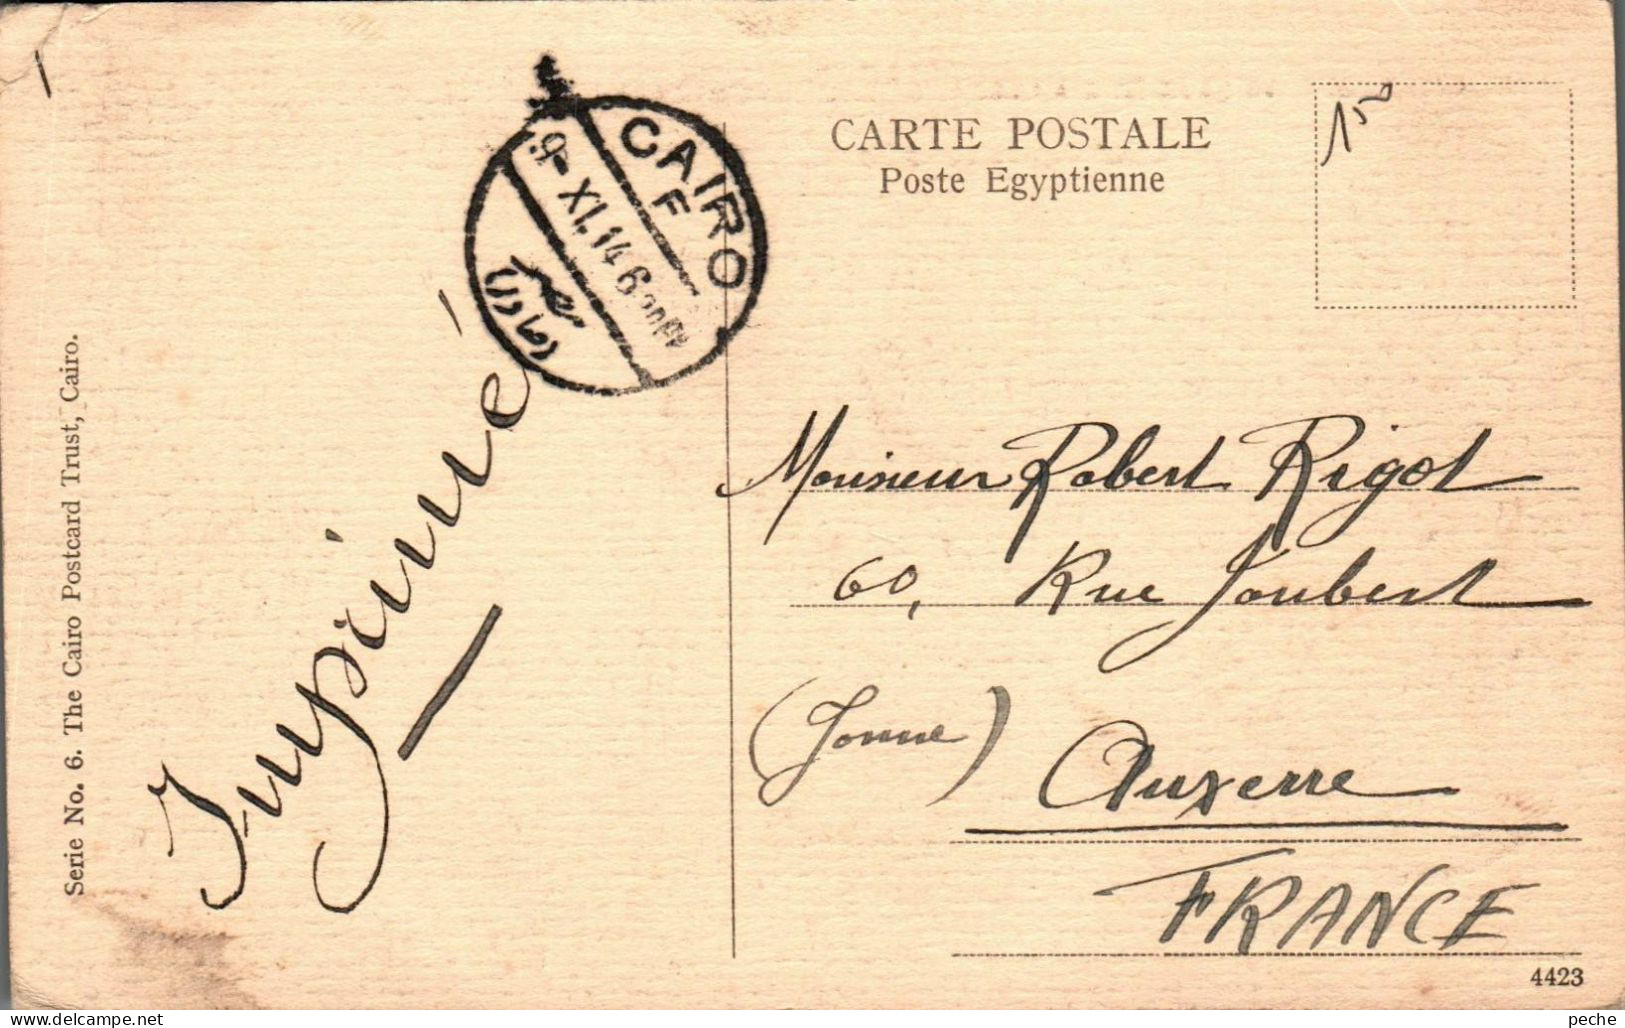 CARTE POSTALE
Poste Egyptienne
150
CAIRO
F
9-XI.14 6
Imprimé
Serie No. 6. The Cairo Postcard Trust, Cairo.
Monsieur Robert Rigot
60, Rue Joubert
(Yonne)
Auxerre
FRANCE
4423
delcampe.net
peche